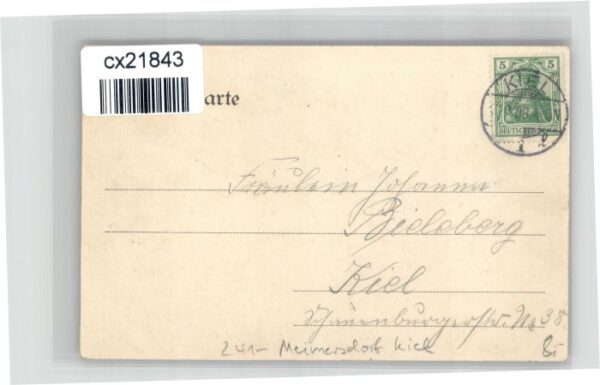 cx21843
arte
5 5
KIEL
DEUTSCHES
Fräulein Johanna
Bieleberg
Kiel
Schauenburgerstr. No 38.
241- Meimersdorf Kiel
8.-